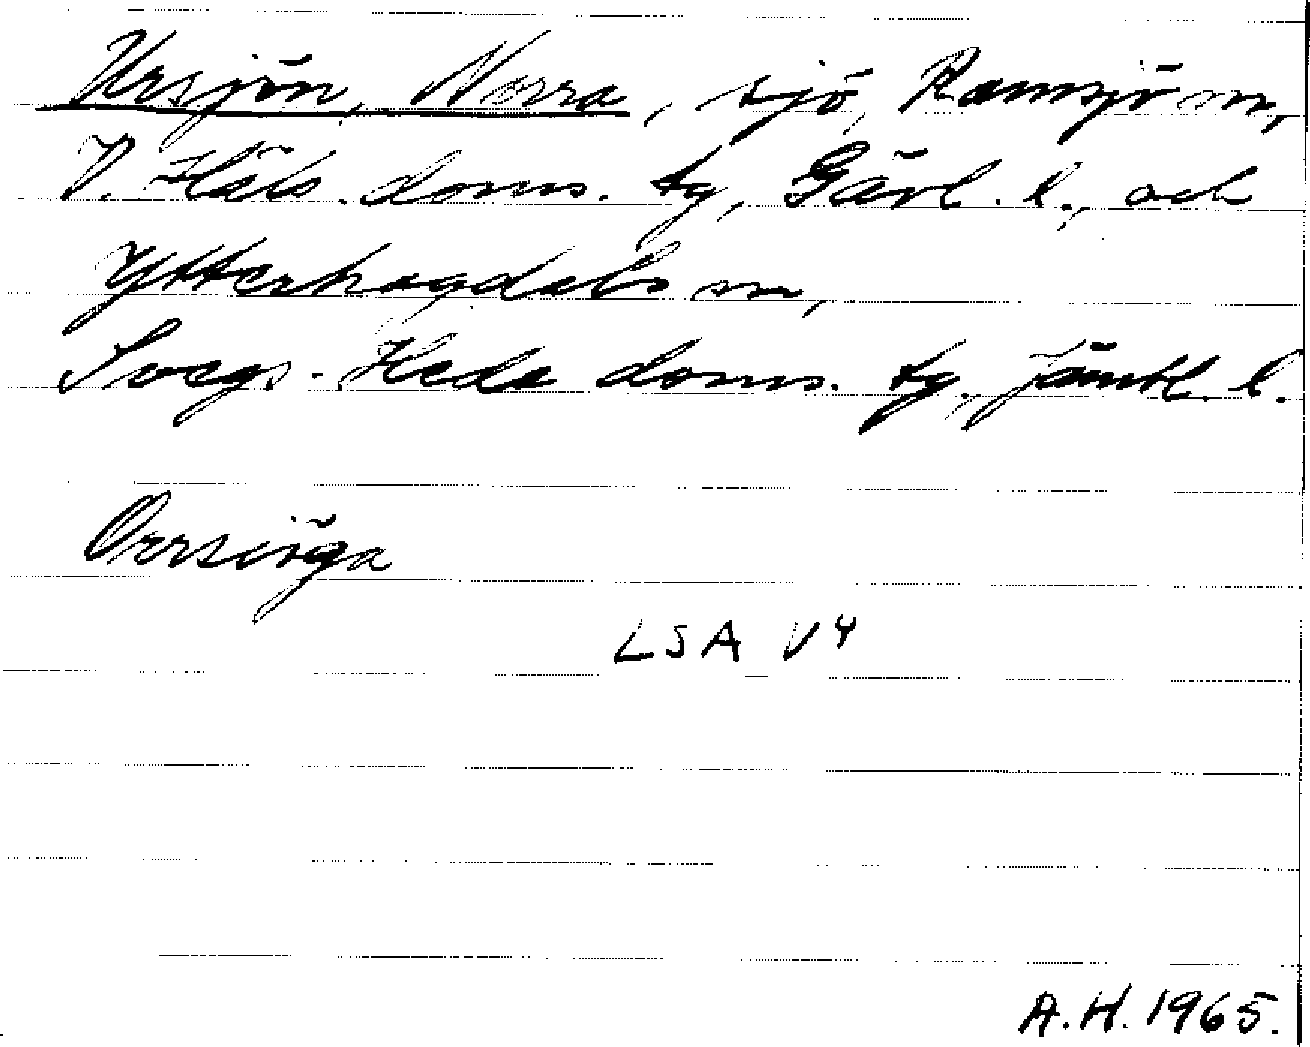 Ursjön, Norra, sjö, Ramsjö sn,
V. Häls. doms. tg, Gävl. l., och
Ytterhogdals sn,
Svegs-Hede doms. tg, Jämtl. l.
Orrsiöga
LSA V4
A.H. 1965.